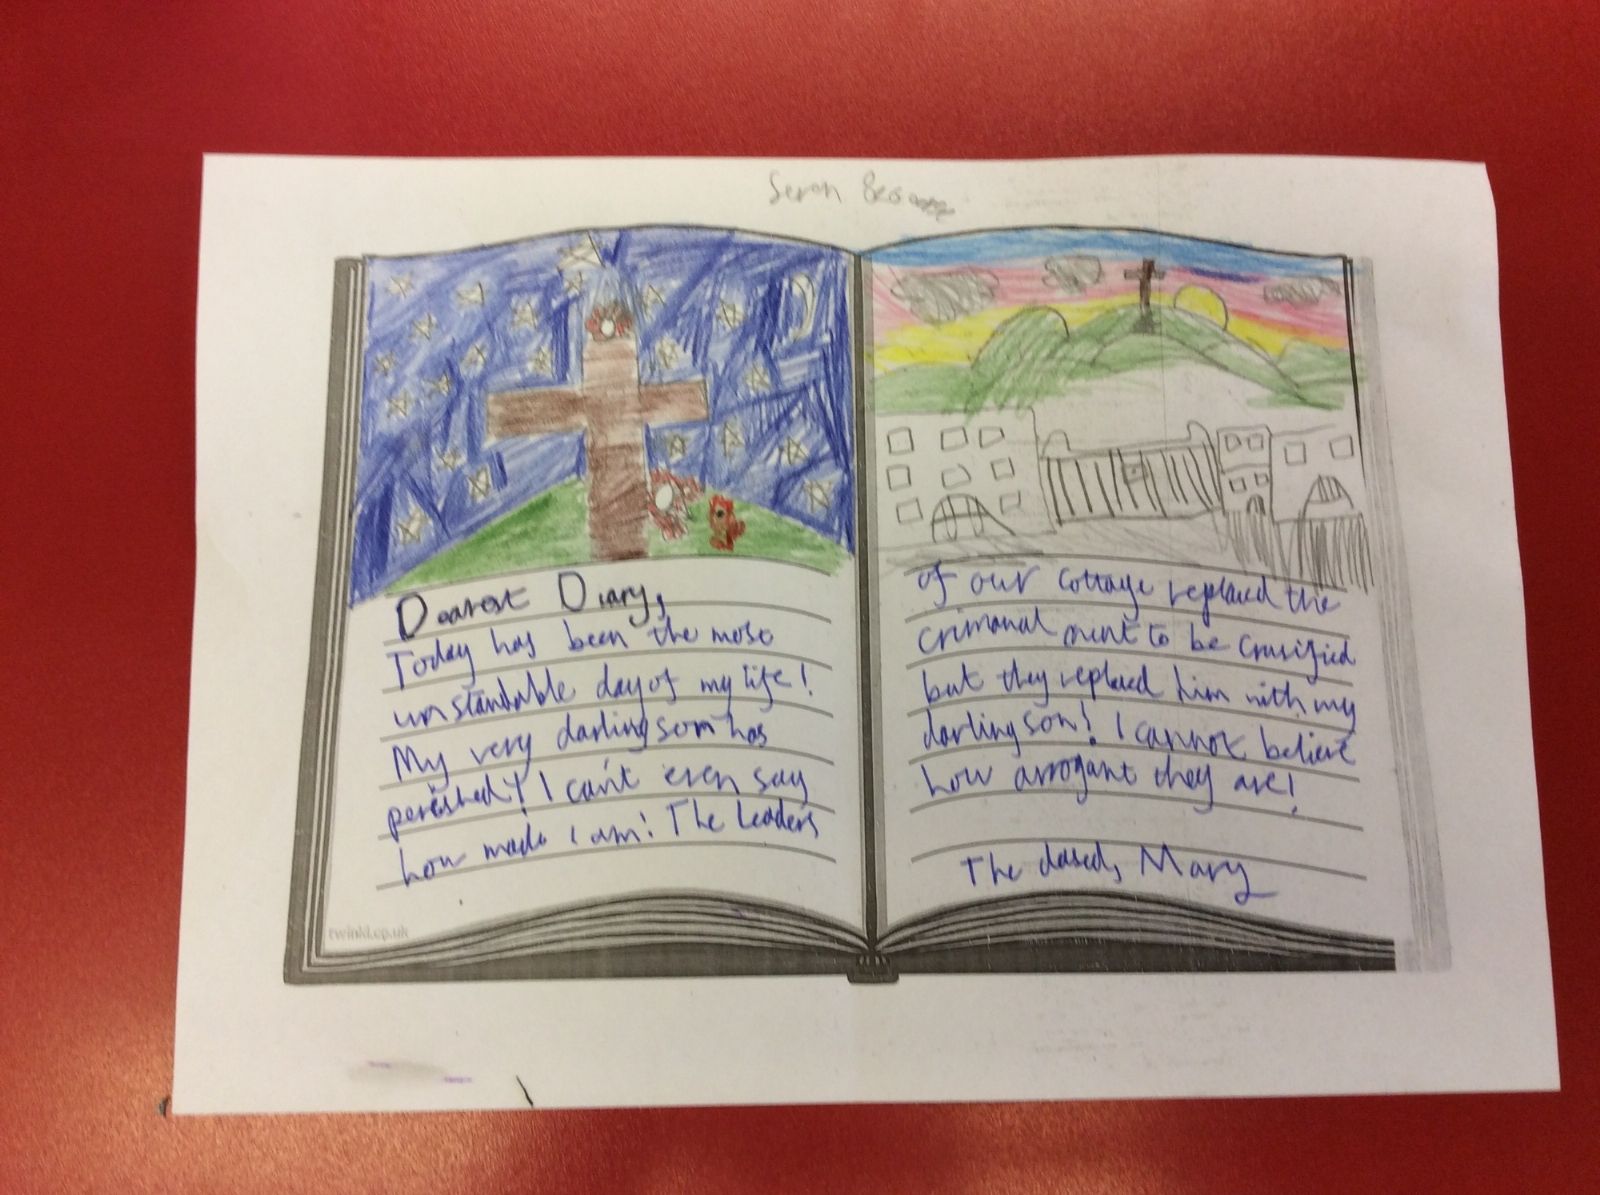 Seren
Dearest Diary,
Today has been the most
unstandable day of my life!
My very darling son has
perished! I can't even say
how made I am! The Leaders
twinkl.co.uk
of our cottage replaced the
crimanal ment to be crusified
but they replaced him with my
darling son! I cannot believe
how arrogant they are!
The dased, Mary